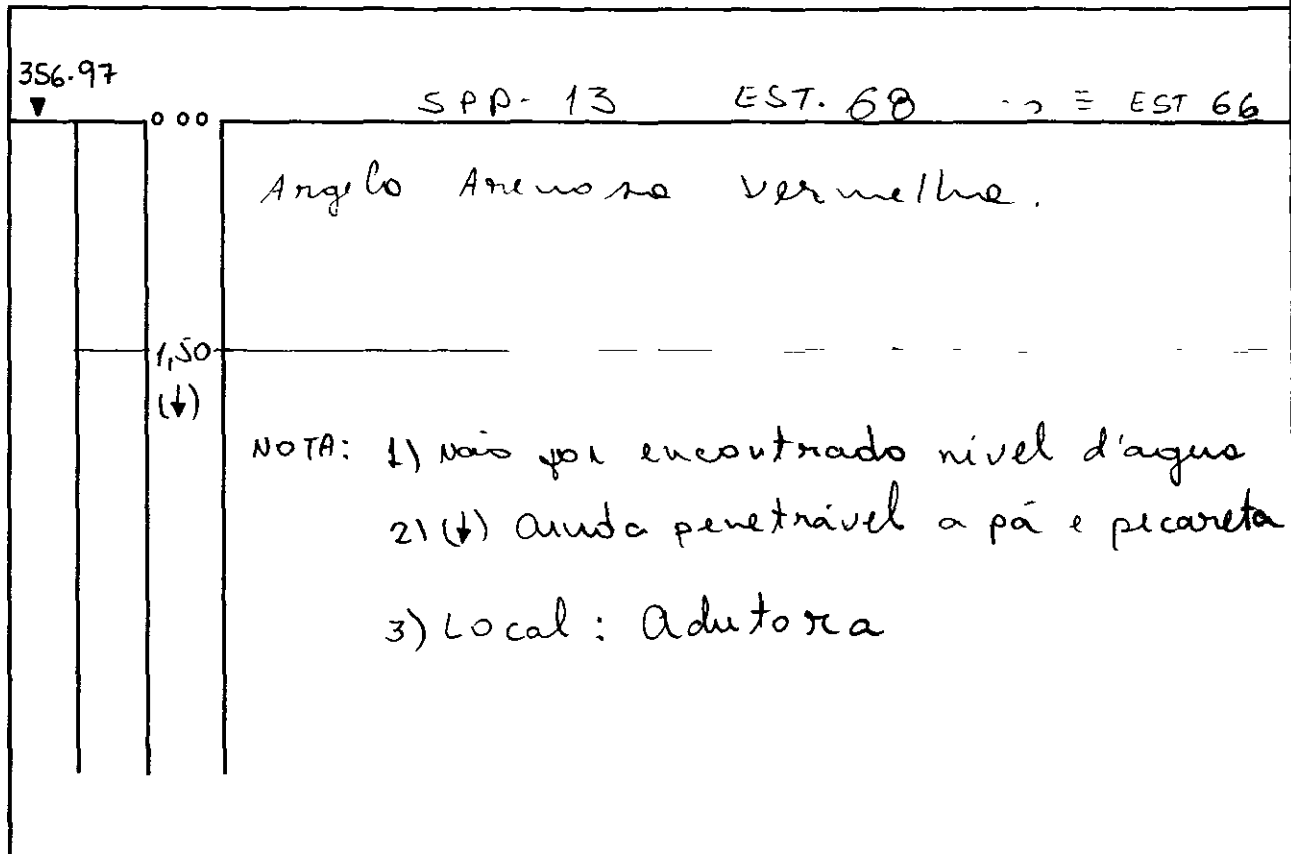 356.97
SPP- 13 EST. 68 ≡ EST 66
0 00
Argila Arenosa vermelha.
1,50
(↓)
NOTA: 1) Não foi encontrado nível d'água
2) (↓) Ainda penetrável a pá e picareta
3) Local: Adutora